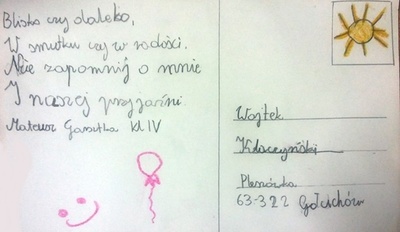 Blisko czy daleko,
W smutku czy w radości.
Nie zapomnij o mnie
I naszej przyjaźni.
Mateusz Gasztka kl IV
Wojtek
Kłaczyński
Pleszówka
63-322 Gołuchów